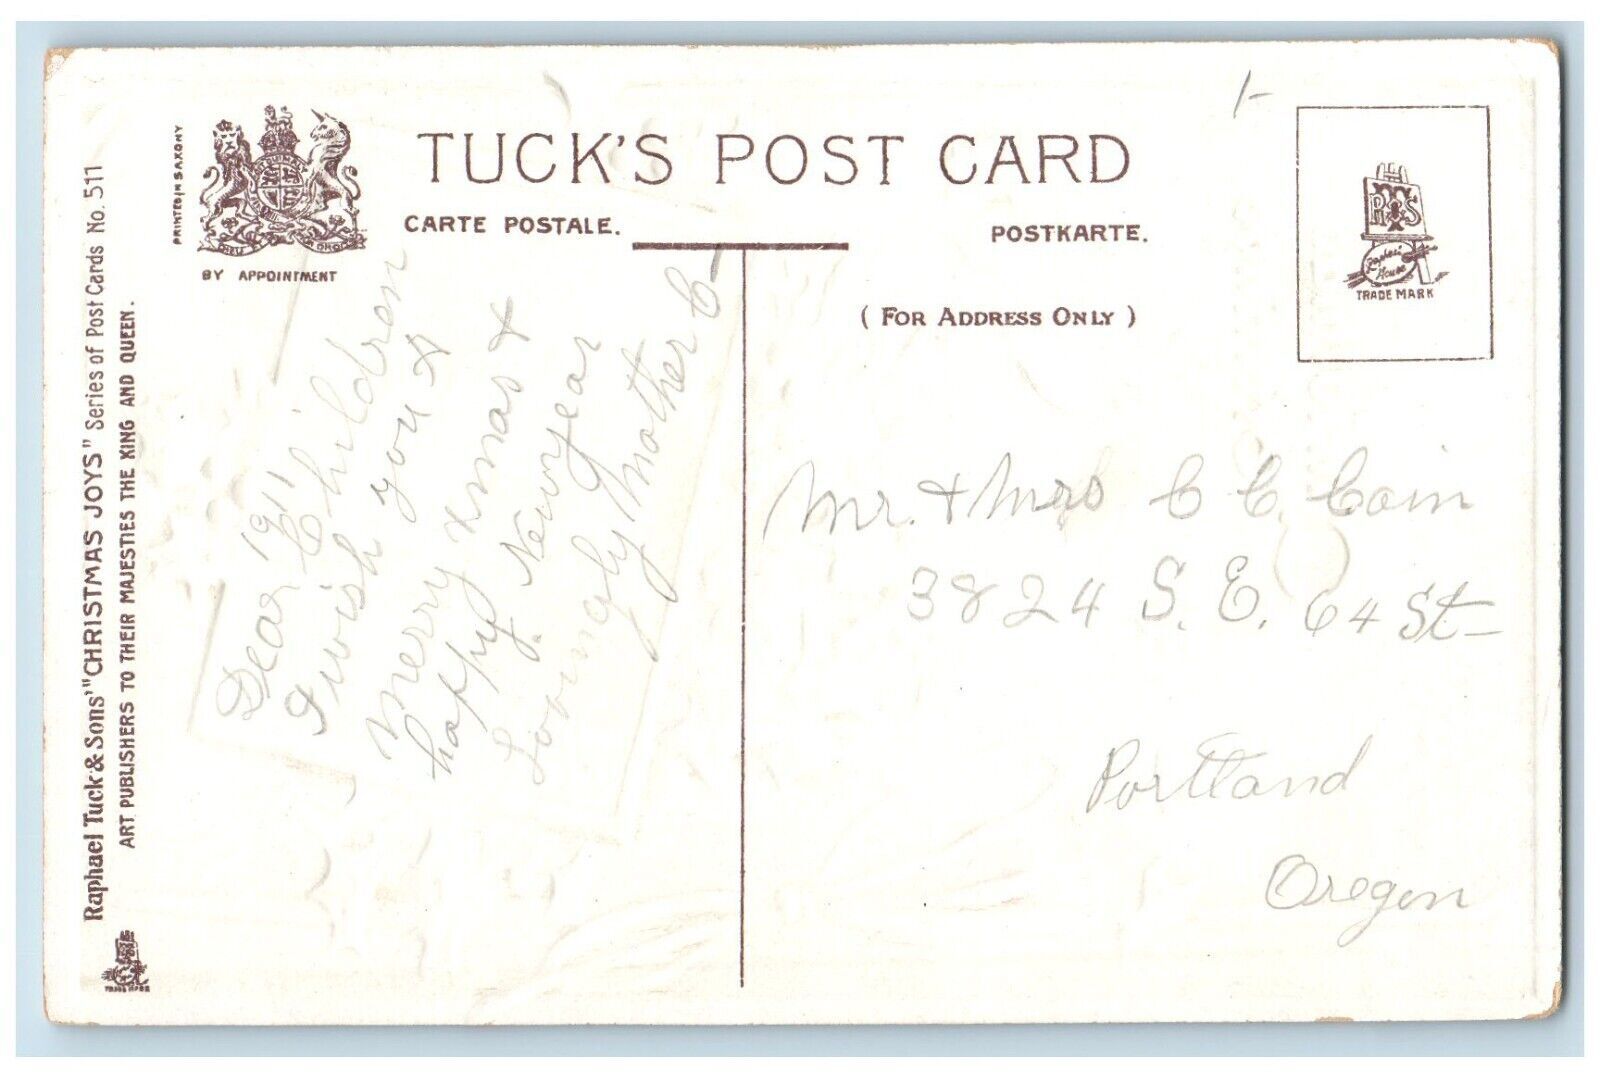 1-
PRINTED IN SAXONY
BY APPOINTMENT
TUCK'S POST CARD
CARTE POSTALE.
POSTKARTE.
(FOR ADDRESS ONLY)
TRADE MARK
Raphael Tuck & Sons' "CHRISTMAS JOYS" Series of Post Cards No. 511
ART PUBLISHERS TO THEIR MAJESTIES THE KING AND QUEEN.
1911
Dear Children
I wish you a
merry xmas &
happy Newyear
Lovingly Mother C
Mr. & Mrs C C. Cain
3824 S. E. 64 St
Portland
Oregon